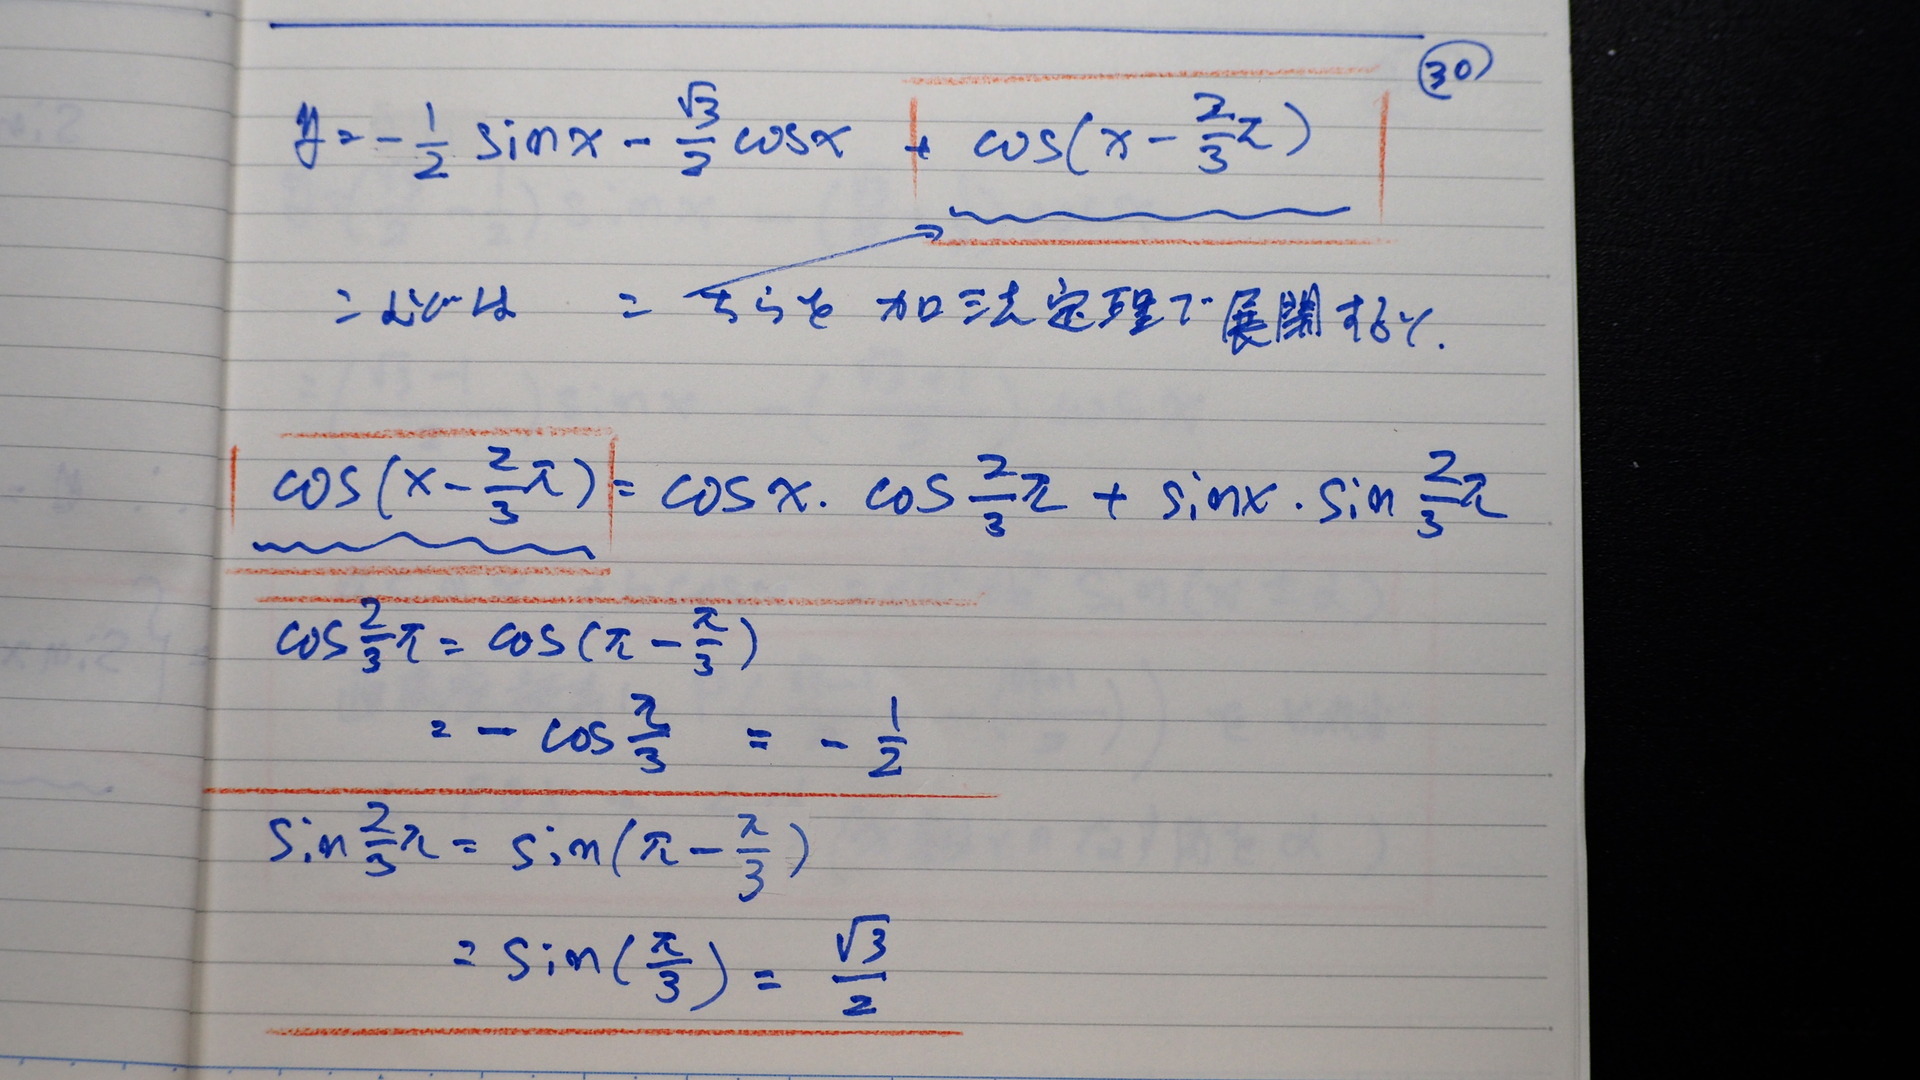 30
y = -1/2 sinx - √3/2 cosx + cos(x - 2/3π)
= こちらを 加法定理で展開すると.
cos(x - 2/3π) = cosx · cos 2/3π + sinx · sin 2/3π
cos 2/3π = cos(π - π/3)
= - cos π/3 = - 1/2
sin 2/3π = sin(π - π/3)
= sin(π/3) = √3/2